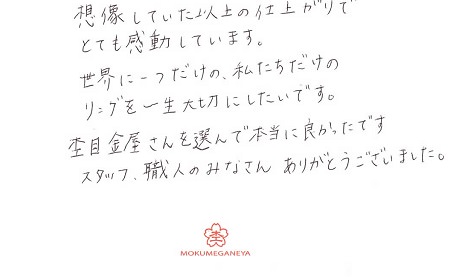 想像していた以上の仕上がりで
とても感動しています。
世界に一つだけの、私たちだけの
リングを一生大切にしたいです。
杢目金屋さんを選んで本当に良かったです
スタッフ、職人のみなさん ありがとうございました。
杢
MOKUMEGANEYA